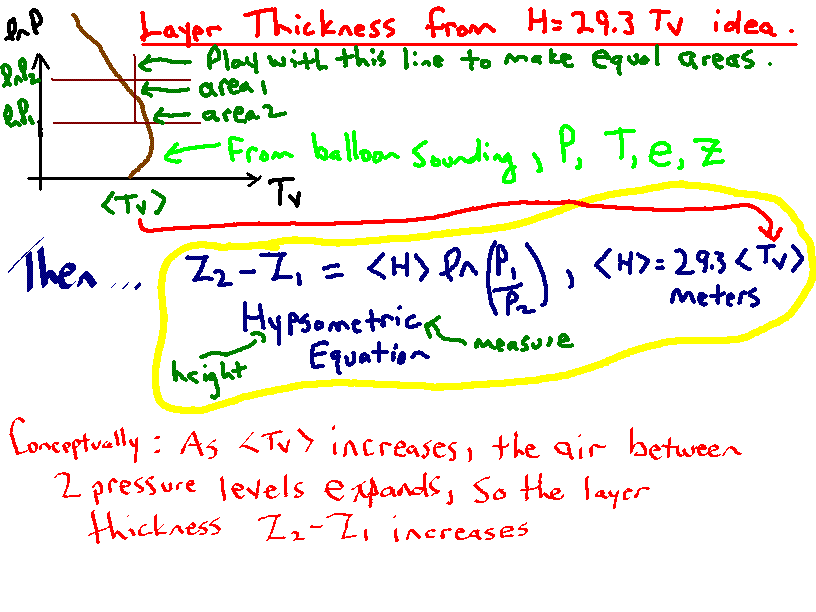 Layer Thickness from H=29.3 Tv idea.
lnP
Play with this line to make equal areas.
lnP2
area1
lnP1
area2
From balloon sounding, P, T, e, z
<Tv>
Tv
Then... Z2-Z1 = <H> ln(P1/P2), <H>=29.3<Tv>
meters
Hypsometric
height
Equation
measure
Conceptually: As <Tv> increases, the air between
2 pressure levels expands, so the layer
thickness Z2-Z1 increases